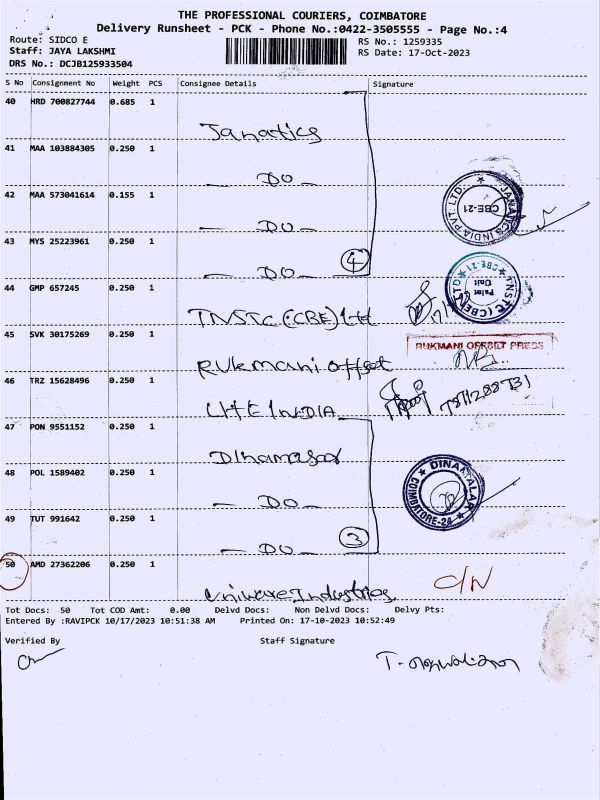 THE PROFESSIONAL COURIERS, COIMBATORE
Delivery Runsheet - PCK - Phone No.:0422-3505555 - Page No.:4
Route: SIDCO E
RS No.: 1259335
Staff: JAYA LAKSHMI
RS Date: 17-Oct-2023
DRS No.: DCJB125933504
S No Consignment No Weight PCS Consignee Details Signature
40 HRD 700827744 0.685 1
Janatics
41 MAA 103884305 0.250 1
— DO —
42 MAA 573041614 0.155 1
— DO —
JANATICS INDIA PVT. LTD. CBE-21
43 MYS 25223961 0.250 1
— DO —
4
44 GMP 657245 0.250 1
TNSTC (CBE) Ltd
TNSTC (CBE) LTD CBE-21 Paint Unit
45 SVK 30175269 0.250 1
Rukmani offset
RUKMANI OFFSET PRESS
46 TRZ 15628496 0.250 1
LHE INDIA
47 PON 9551152 0.250 1
Dinamalar
48 POL 1589402 0.250 1
— DO —
DINAMALAR COIMBATORE-24
49 TUT 991642 0.250 1
— DO —
3
50 AMD 27362206 0.250 1
Uniware Industries
C/N
Tot Docs: 50 Tot COD Amt: 0.00 Delvd Docs: Non Delvd Docs: Delvy Pts:
Entered By :RAVIPCK 10/17/2023 10:51:38 AM Printed On: 17-10-2023 10:52:49
Verified By Staff Signature